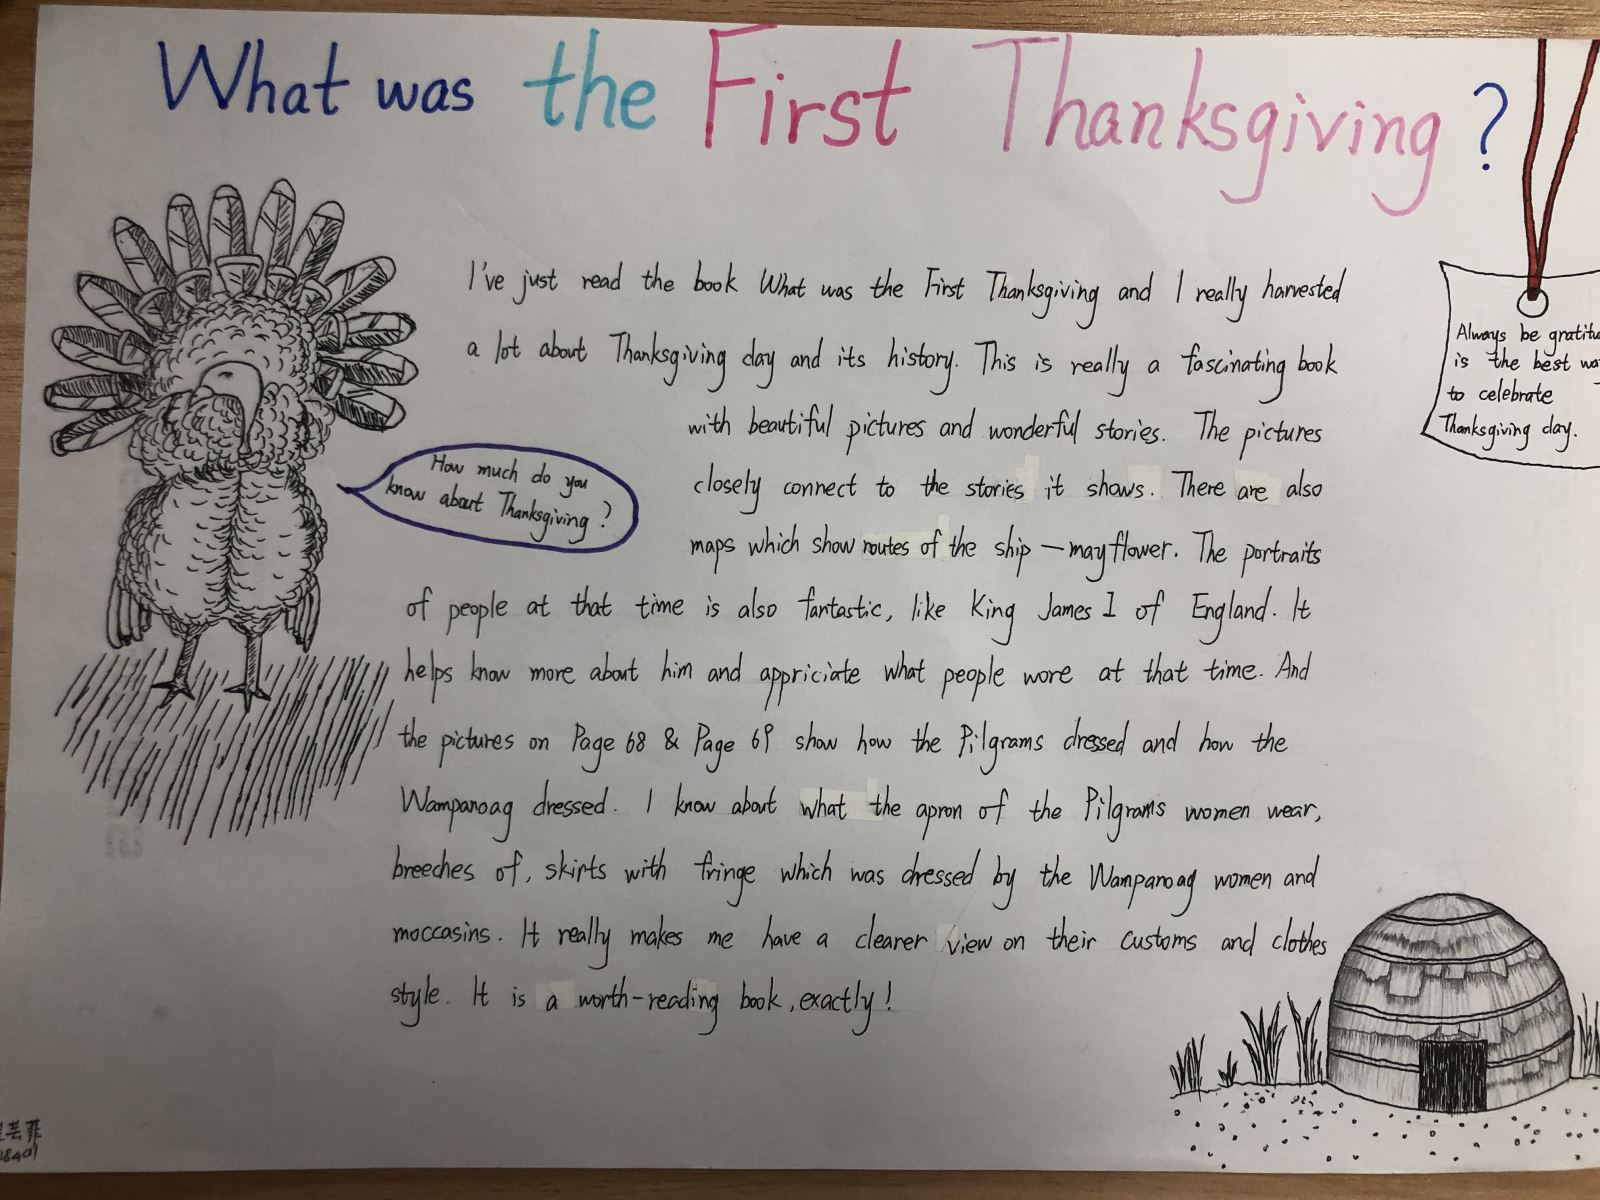 What was the First Thanksgiving ?
I've just read the book What was the First Thanksgiving and I really harvested
a lot about Thanksgiving day and its history. This is really a fascinating book
with beautiful pictures and wonderful stories. The pictures
closely connect to the stories it shows. There are also
maps which show routes of the ship — mayflower. The portraits
of people at that time is also fantastic, like King James I of England. It
helps know more about him and appriciate what people wore at that time. And
the pictures on Page 68 & Page 69 show how the Pilgrams dressed and how the
Wampanoag dressed. I know about what the apron of the Pilgrams women wear,
breeches of, skirts with fringe which was dressed by the Wampanoag women and
moccasins. It really makes me have a clearer view on their customs and clothes
style. It is a worth-reading book, exactly!
How much do you
know about Thanksgiving?
Always be
is the best
to celebrate
Thanksgiving day.
芸菲